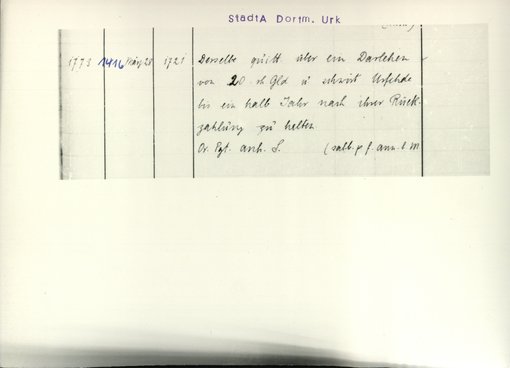 StadtA Dortm. Urk
1773 1416 März 28 1721 Derselbe quitt. über ein Darlehen
von 20 rh Gld u schwört Urfehde
bis ein halb Jahr nach ihrer Rück-
zahlung zu halten
Or. Pgt. anh. S. (sabb. p f. ann. b M